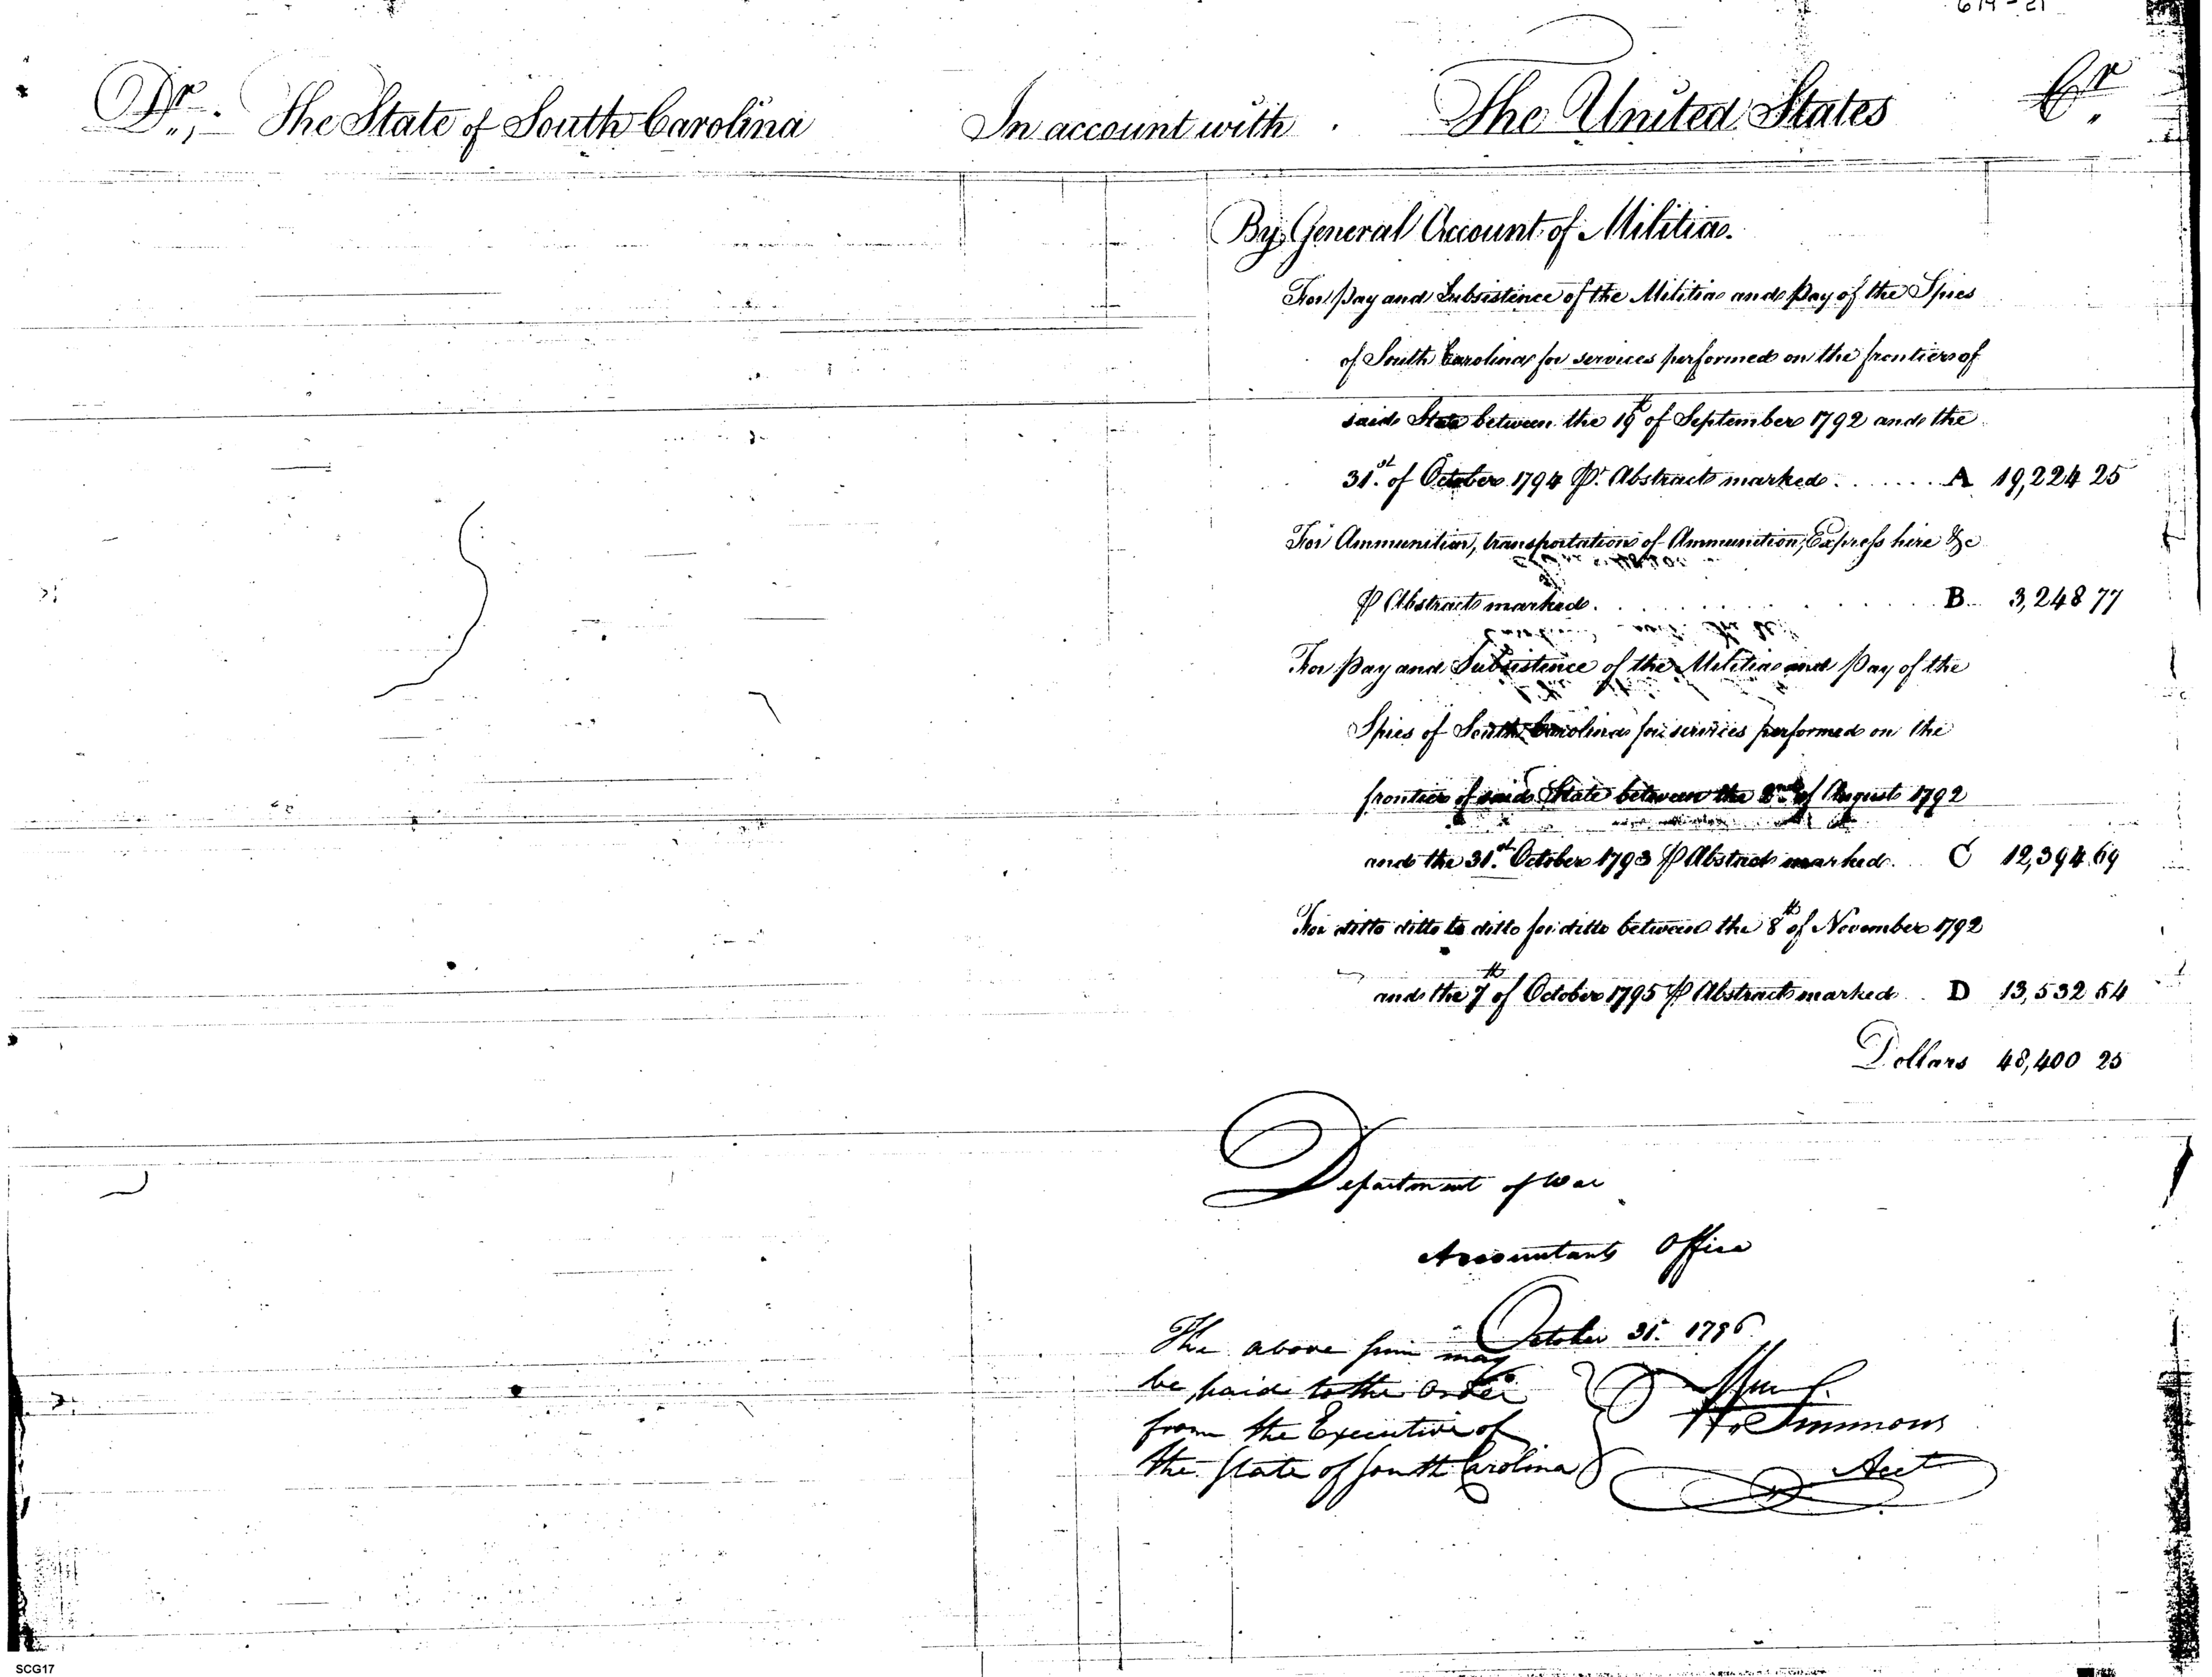 614-21
Dr. The State of South Carolina In account with The United States Cr
By General Account of Militia.
For pay and Subsistence of the Militia and pay of the Spies
of South Carolina for services performed on the frontiers of
said State between the 19th of September 1792 and the
31st. of October 1794 ⅌r. Abstract marked . . . . . . . A 19,224 25
For Ammunition, transportation of Ammunition, Express hire &c
⅌ Abstract marked. . . . . . . . . . . . B 3,248 77
For pay and Subsistence of the Militia and pay of the
Spies of South Carolina for services performed on the
frontier of said State between the 2nd of August 1792
and the 31st. October 1793 ⅌ Abstract marked. . C 12,394 69
For ditto ditto to ditto for ditto between the 8th of November 1792
and the 7th of October 1795 ⅌ Abstract marked . . D 13,532 54
Dollars 48,400 25
Department of War
Accountants Office
October 31. 1796
The above sum may
be paid to the order
from the Executive of
the State of South Carolina
Wm Simmons
Acct
SCG17